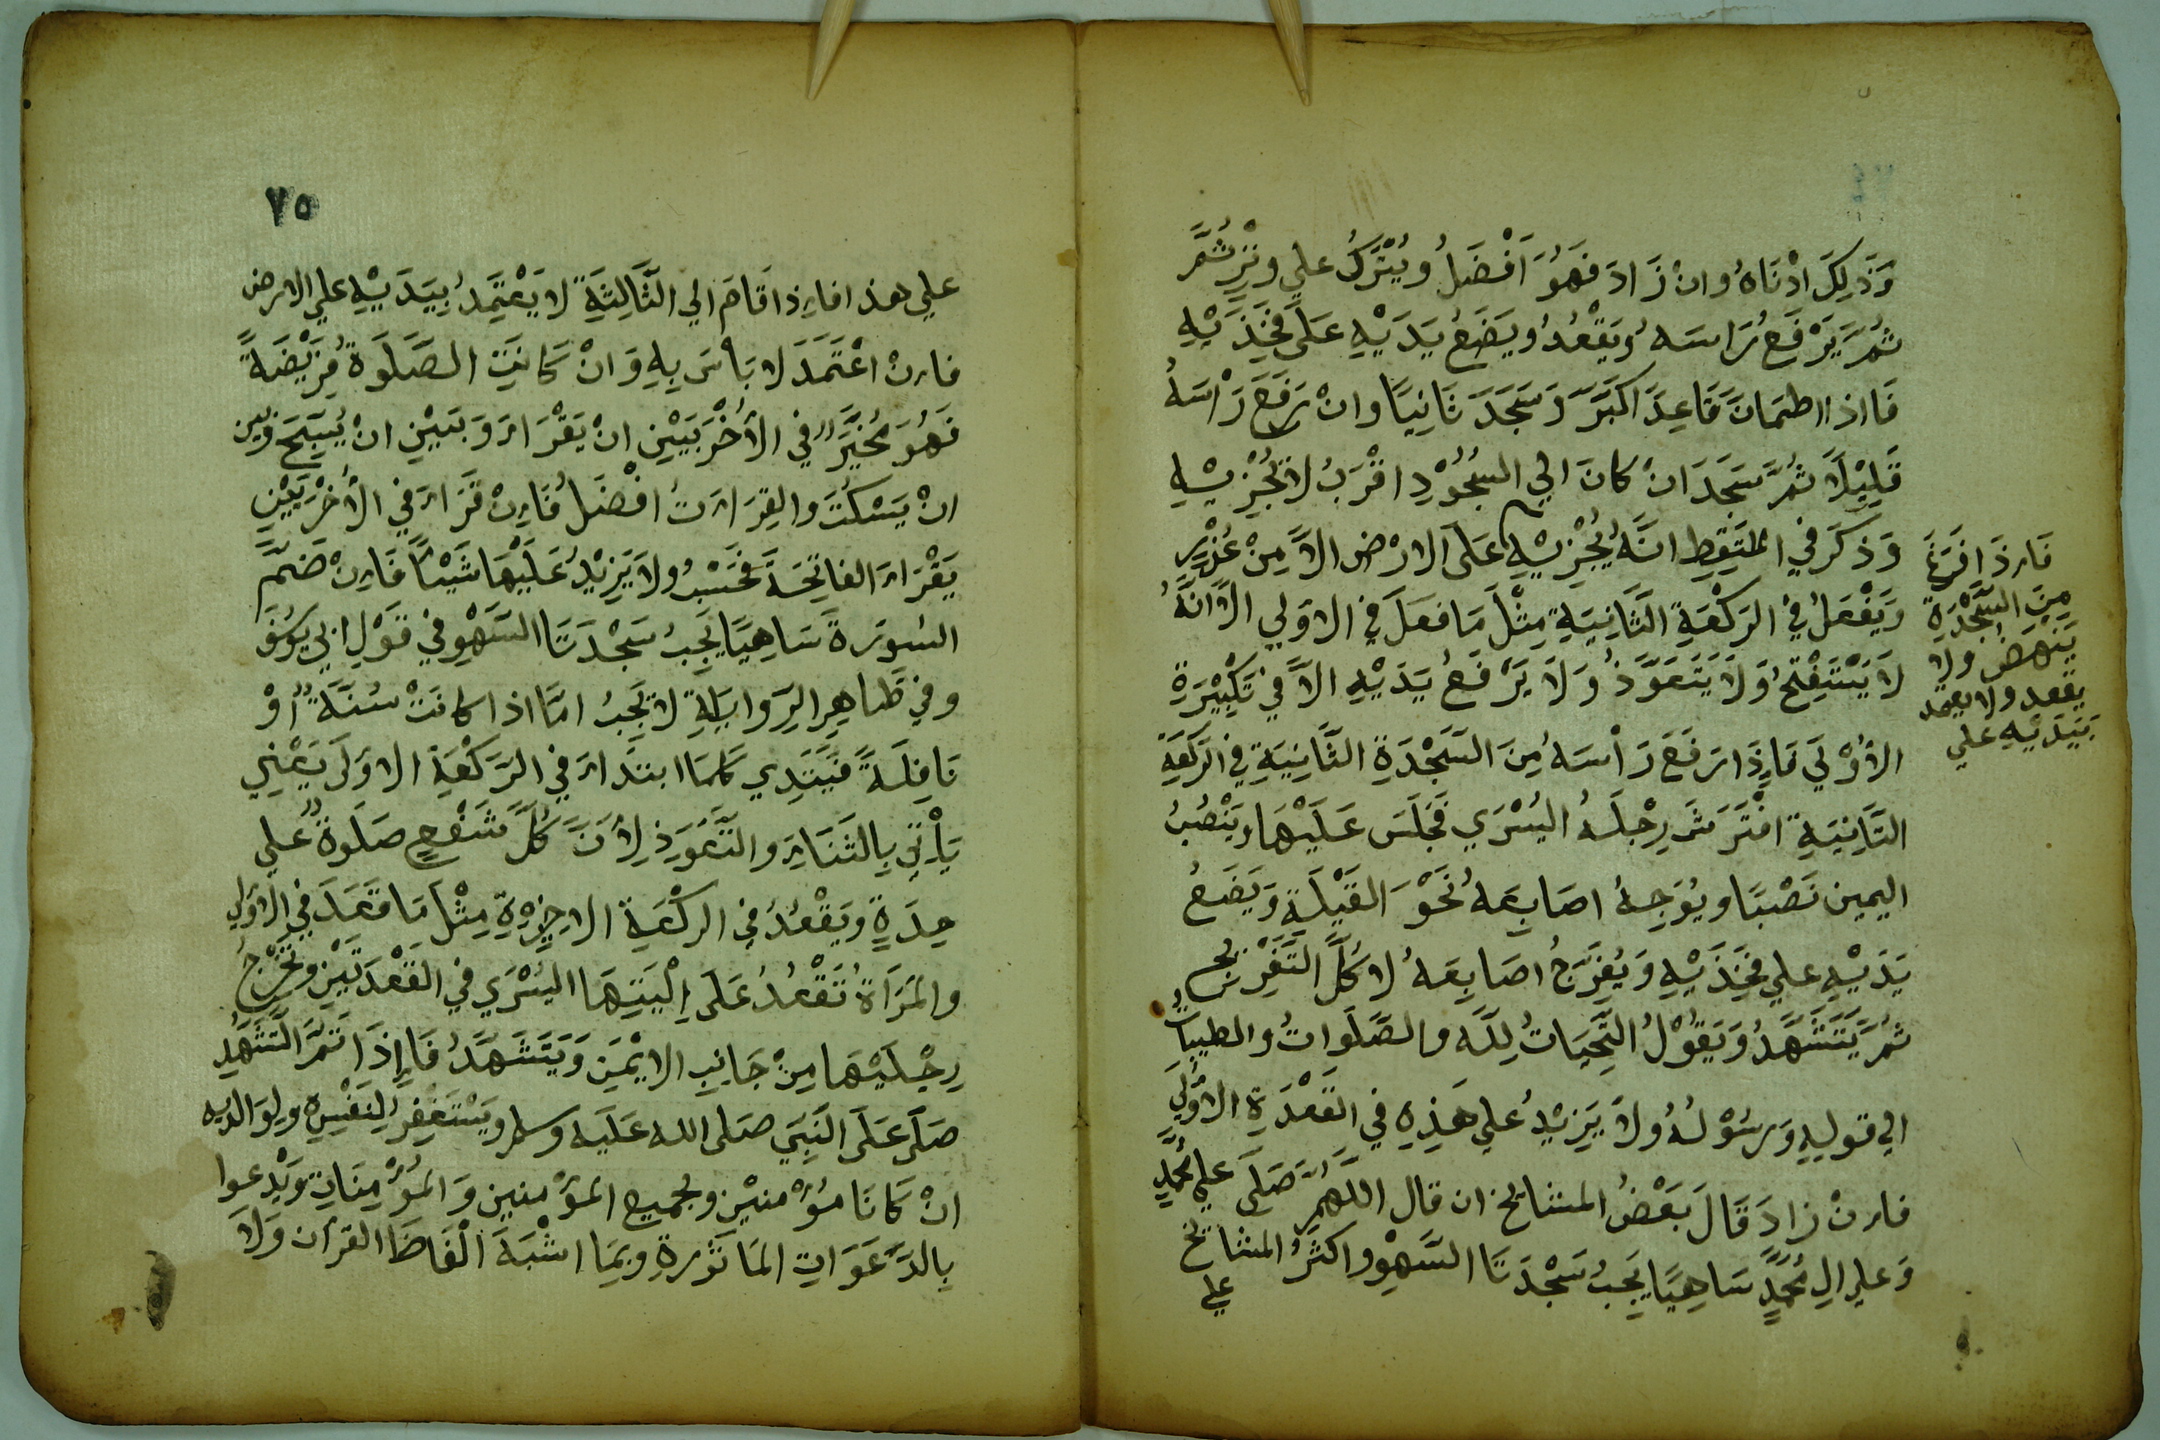 وَذَلِكَ ادْنَاهُ وان زَادَ فَهُوَ اَفْضَلُ ويُتْرَكُ علي وِتْرٍ ثُمَّ
ثُمَّ يَرْفَعُ رَاسَهُ وَيَقْعُدُ ويَضَعُ يَدَيْهِ عَلَى فَخِذَيْهِ
فَااذا اطمَانَّ قَاعِدًا كَبَّرَ وَسَجَدَ ثَانِيًا وانْ رَفَعَ رَاْسَهُ
قَلِيْلًا ثُمَّ سَجَدَ انْ كانَ الي السُجُوْدِ اقْرَبُ لا تُجْزِيْهِ
وَذكَرَ في الملتَقِطِ انَّهُ يُجْزِيْهِ عَلَى الارْضِ الاَّ مِنْ عُذْرٍ
وَيَفْعَلُ فِي الرَكْعَةِ الثَّانِيَةِ مِثْلَ مَا فعَلَ فِي الاوْلي الاَّ انَّهُ
لَا يَسْتَفْتِحُ وَلَا يَتَعَوَّذُ وَلَا يَرْفَعُ يَدَيْهِ الاَّ فِي تَكْبِيْرَةِ
الاُوْلَي فَاِذَا رَفَعَ رَاْسَهُ مِنَ السَجْدَةِ الثَّانِيَةِ فِي الرَكْعَةِ
الثَّانِيَةِ افْتَرَشَ رِجْلَهُ اليُسْرَي فَجَلَسَ عَلَيْهَا ويَنْصُبُ
اليمين نَصْبًا ويُوَجِهُ اصَابِعَهُ نَحْوَ القِبْلَةِ وَيَضَعُ
يَدَيْهِ علي فخِذَيْهِ وَيُفَرّجُ اصَابِعَهُ لا كُلَّ التَّفْرِيْجِ
ثُمَّ يَتَشَهَّدُ وَيَقُوْلُ التَّحِيَاتُ لِلَّهِ والصَّلَوَاتُ والطيباتُ
الي قولِهِ وَرسُوْلُهُ ولَا يَزِيْدُ علي هَذِهِ في القَعْدَةِ الاُوْلَي
فاِنْ زادَ قَالَ بَعْضُ المشايخ ان قال اللّهُمَّ صَلِّ علي مُحَمَّدٍ
وَعلي الِ مُحَمَّدٍ سَاهِيًا يَجِبُ سَجْدَتَا السَّهْوِ واكثَرُ المشايخ
علي
فَاِذَا فَرَغَ
مِنَ السَّجْدَةِ
يَنْهَضُ ولا
يقعد ولا يعتمد
بِيَدَيْهِ علي
٧٥
علي هذا فاِذا قَامَ الي الثَّالِثَةِ لا يَعْتَمِدُ بِيَدَيْهِ علي الارض
فاِنْ اعْتَمَدَ لا بَاْسَ بِهِ وَانْ كَانَتِ الصَّلَوةُ فَرِيْضَةً
فَهُوَ مُخَيَّرٌ فِي الأُخْرَيَيْنِ انْ يَقْرَاءَ وَبَيْنِ انْ يُسَبِّحَ وَبَين
انْ يَسْكُتَ والقِرَاءَتُ افْضَلُ فَاِنْ قَرَاءَ فِي الأُخْرَيَيْنِ
يَقْرَاءَ الفاتِحَةَ فَحَسْبُ ولَا يَزِيْدُ عَلَيْهَا شَيْئًا فَاِنْ ضَمَّ
السُورَةَ سَاهِيًا يَجِبُ سَجْدَتَا السَّهْوِ فِي قَوْلِ ابي يُوسُفَ
وفي ظَاهِرِ الرِوايَةِ لا يَجِبُ امَّا اذا كانَتْ سُنَّةً اوْ
نَافِلَةً فَيَبْتَدِي كَمَا ابتدَاءَ فِي الرَّكْعَةِ الاوْلَى يَعْنِي
يَأْتِي بِالثَنَاءِ والتَّعَوُذِ لِأَنَّ كُلَّ شَفْعٍ صَلَوةٌ علي
حِدَةٍ ويَقْعُدُ فِي الركْعَةِ الاخِيْرَةِ مِثْلَ مَا قَعَدَ فِي الاوْلي
والمَرَاَةُ تَقْعُدُ عَلَى اِلْيَتِهَا اليُسْرَي فِي القَعْدَتَيْنِ وتُخْرِجُ
رِجْلَيْهَا مِنْ جَانِبِ الايْمَنِ وَيَتَشَهَّدُ فَاِذَا تَمَّ التَّشَهُّدِ
صَلَّى عَلَى النَبِيّ صَلى الله عَلَيه وسلم ويَسْتَغْفِرُ لِنَفْسِهِ ولِوَالديه
انْ كَانَا مُؤْمنيْنِ ولجميع المؤمنين وَالمُؤْمِنَاتِ وَيَدْعوا
بِالدَّعَوَاتِ المَاثُورةِ وبِمَا اشْبَهَ الْفَاظَ القرْان وَلَا